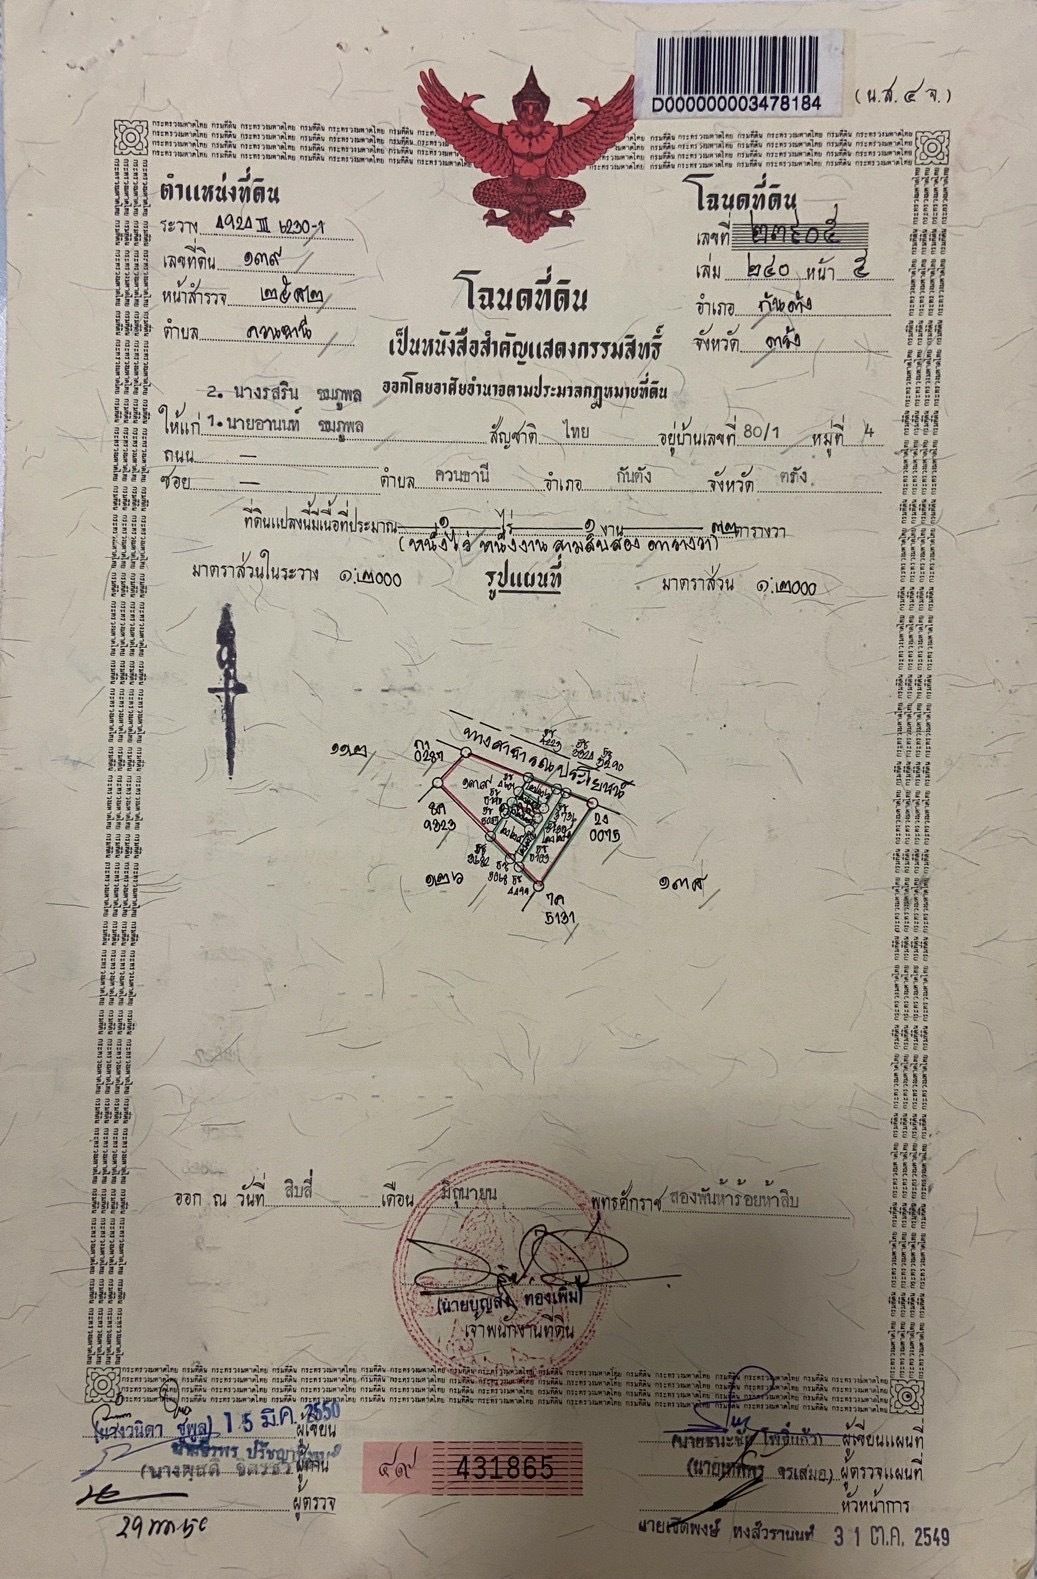 D000000003478184
(น.ส. ๔ จ.)
ตำแหน่งที่ดิน
ระวาง 4924 III 6230-1
เลขที่ดิน ๑๓๙
หน้าสำรวจ ๒๕๙๒
ตำบล ควนธานี
โฉนดที่ดิน
เลขที่ ๒๓๙๐๕
เล่ม ๒๔๐ หน้า ๕
อำเภอ กันตัง
จังหวัด ตรัง
โฉนดที่ดิน
เป็นหนังสือสำคัญแสดงกรรมสิทธิ์
ออกโดยอาศัยอำนาจตามประมวลกฎหมายที่ดิน
2. นางรสริน ชมภูพล
ให้แก่ 1. นายอานนท์ ชมภูพล สัญชาติ ไทย อยู่บ้านเลขที่ 80/1 หมู่ที่ 4
ถนน —
ซอย — ตำบล ควนธานี อำเภอ กันตัง จังหวัด ตรัง
ที่ดินแปลงนี้มีเนื้อที่ประมาณ ๑ ไร่ ๑ งาน ๓๒ ตารางวา
(หนึ่งไร่ หนึ่งงาน สามสิบสอง ตารางวา)
มาตราส่วนในระวาง ๑:๒000 รูปแผนที่ มาตราส่วน ๑:๒000
ทางสาธารณประโยชน์
๑๑๒
0287
9323
๑๓๙
2ง
0075
๑๒๖
๑๓๘
5131
ออก ณ วันที่ สิบสี่ เดือน มิถุนายน พุทธศักราช สองพันห้าร้อยห้าสิบ
(นายบุญส่ง ทองเพิ่ม)
เจ้าพนักงานที่ดิน
(นางวนิดา ชูพูล) 15 มี.ค. 2550 ผู้เขียน
ผู้ทาน
ผู้ตรวจ
๔๙ 431865
ผู้เขียนแผนที่
ผู้ตรวจแผนที่
หัวหน้าการ
นายเชิดพงษ์ หงส์วรานนท์ 31 ต.ค. 2549